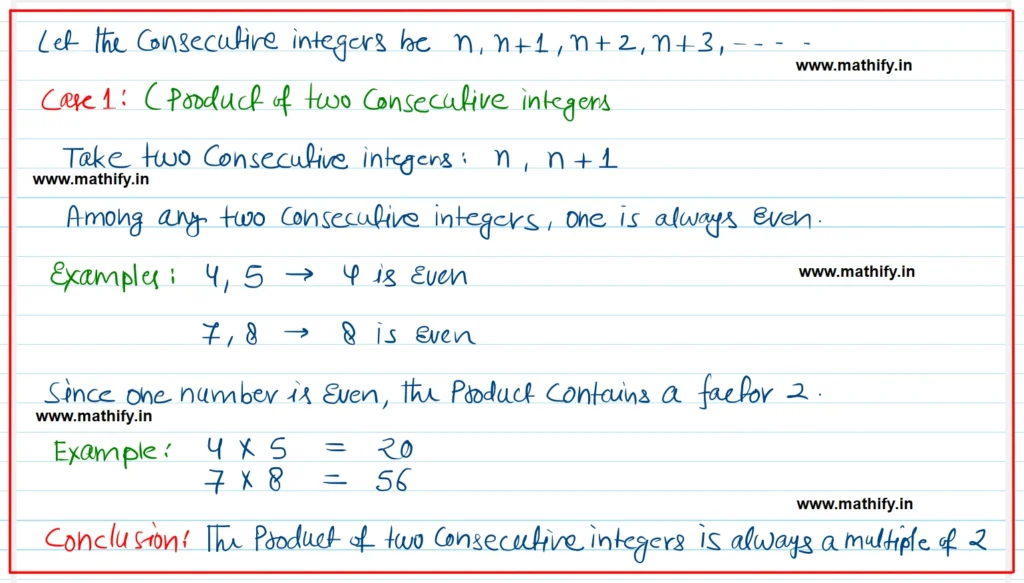 Let the Consecutive integers be n, n+1, n+2, n+3, - - - -
www.mathify.in
Case 1: (Product of two Consecutive integers
Take two Consecutive integers: n, n+1
www.mathify.in
Among any two Consecutive integers, one is always Even.
Examples: 4, 5 → 4 is Even
www.mathify.in
7, 8 → 8 is Even
Since one number is Even, the Product Contains a factor 2.
www.mathify.in
Example: 4 × 5 = 20
7 × 8 = 56
www.mathify.in
Conclusion: The Product of two Consecutive integers is always a multiple of 2